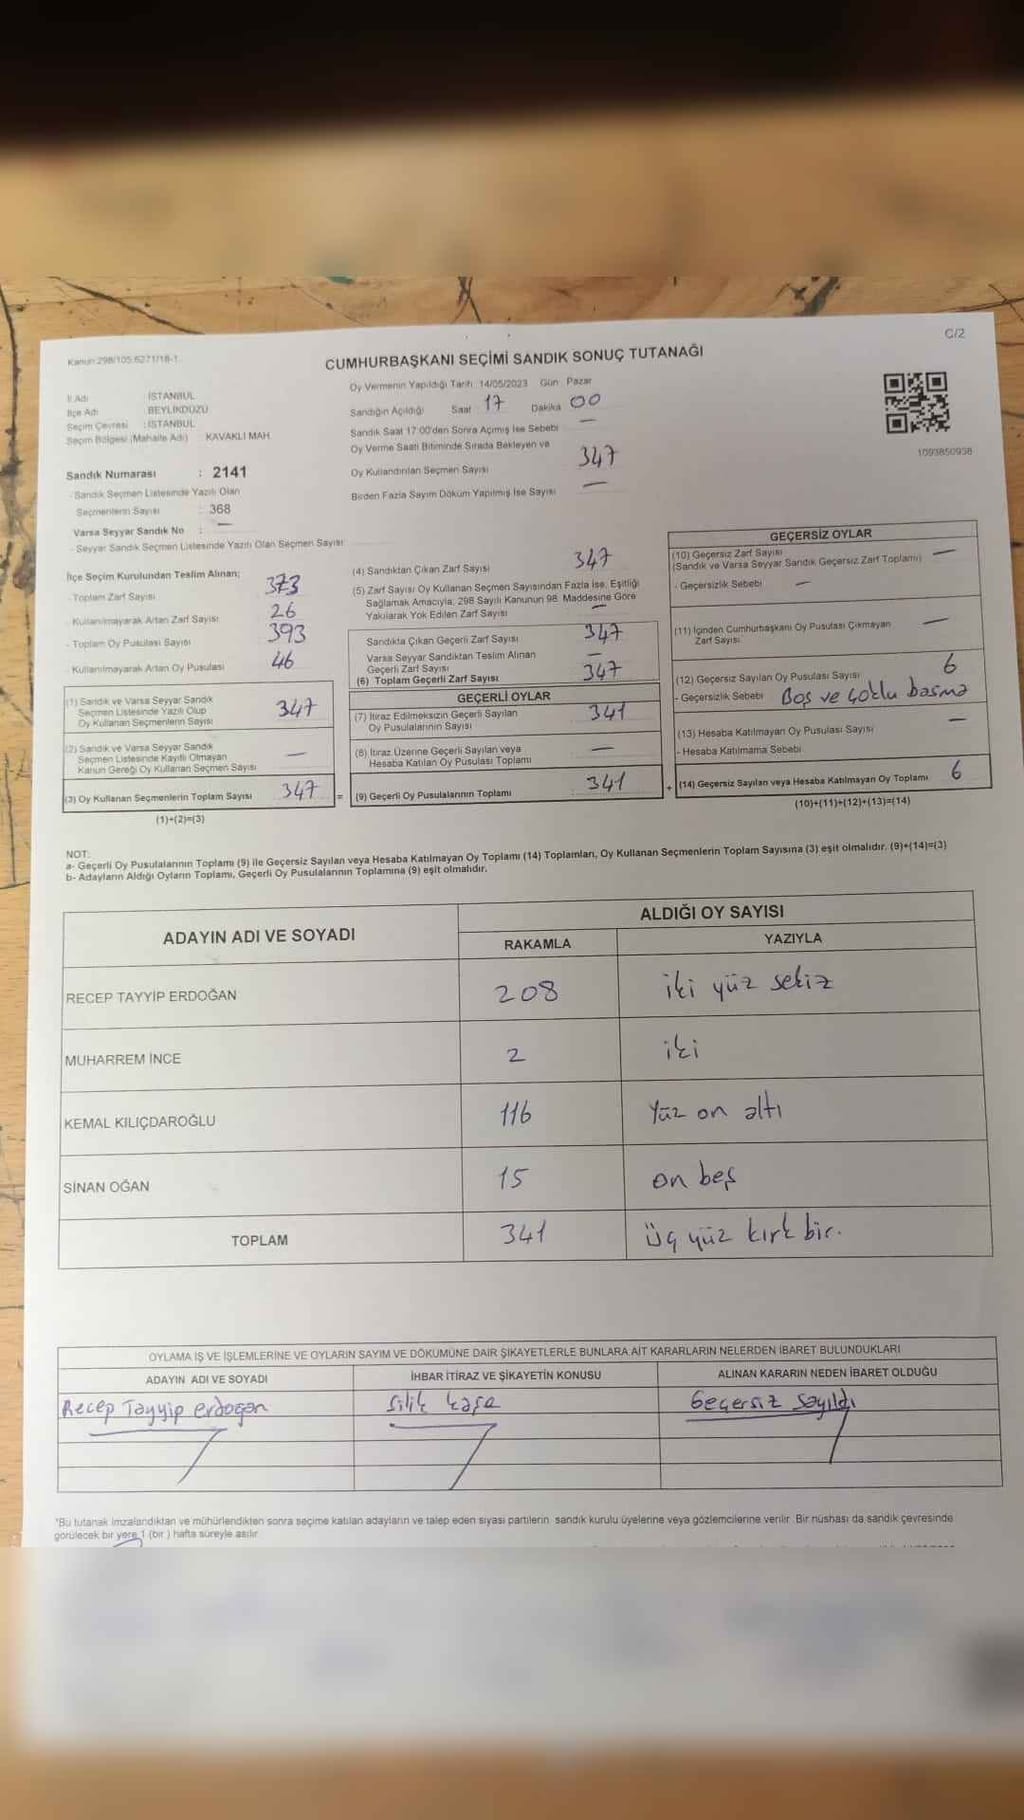 C/2
Kanun 298/105.6271/18-1.
CUMHURBAŞKANI SEÇİMİ SANDIK SONUÇ TUTANAĞI
İl Adı : İSTANBUL
İlçe Adı : BEYLİKDÜZÜ
Seçim Çevresi : İSTANBUL
Seçim Bölgesi (Mahalle Adı) : KAVAKLI MAH
Sandık Numarası : 2141
- Sandık Seçmen Listesinde Yazılı Olan
Seçmenlerin Sayısı : 368
Varsa Seyyar Sandık No : —
- Seyyar Sandık Seçmen Listesinde Yazılı Olan Seçmen Sayısı:
Oy Vermenin Yapıldığı Tarih: 14/05/2023 Gün Pazar
Sandığın Açıldığı Saat 17 Dakika 00
Sandık Saat 17:00'den Sonra Açımış İse Sebebi —
Oy Verme Saati Bitiminde Sırada Bekleyen ve
Oy Kullandırılan Seçmen Sayısı 347
Birden Fazla Sayım Döküm Yapılmış İse Sayısı —
1093850938
İlçe Seçim Kurulundan Teslim Alınan;
- Toplam Zarf Sayısı 373
- Kullanılmayarak Artan Zarf Sayısı 26
- Toplam Oy Pusulası Sayısı 393
- Kullanılmayarak Artan Oy Pusulası 46
(1) Sandık ve Varsa Seyyar Sandık
Seçmen Listesinde Yazılı Olup
Oy Kullanan Seçmenlerin Sayısı 347
(2) Sandık ve Varsa Seyyar Sandık
Seçmen Listesinde Kayıtlı Olmayan
Kanun Gereği Oy Kullanan Seçmen Sayısı —
(3) Oy Kullanan Seçmenlerin Toplam Sayısı 347 =
(1)+(2)=(3)
(4) Sandıktan Çıkan Zarf Sayısı 347
(5) Zarf Sayısı Oy Kullanan Seçmen Sayısından Fazla İse, Eşitliği
Sağlamak Amacıyla, 298 Sayılı Kanunun 98. Maddesine Göre
Yakılarak Yok Edilen Zarf Sayısı —
Sandıkta Çıkan Geçerli Zarf Sayısı 347
Varsa Seyyar Sandıktan Teslim Alınan
Geçerli Zarf Sayısı —
(6) Toplam Geçerli Zarf Sayısı 347
GEÇERLİ OYLAR
(7) İtiraz Edilmeksizin Geçerli Sayılan
Oy Pusulalarının Sayısı 341
(8) İtiraz Üzerine Geçerli Sayılan veya
Hesaba Katılan Oy Pusulası Toplamı —
(9) Geçerli Oy Pusulalarının Toplamı 341 +
GEÇERSİZ OYLAR
(10) Geçersiz Zarf Sayısı —
(Sandık ve Varsa Seyyar Sandık Geçersiz Zarf Toplamı)
- Geçersizlik Sebebi —
(11) İçinden Cumhurbaşkanı Oy Pusulası Çıkmayan
Zarf Sayısı —
(12) Geçersiz Sayılan Oy Pusulası Sayısı 6
- Geçersizlik Sebebi Boş ve çoklu basma
(13) Hesaba Katılmayan Oy Pusulası Sayısı —
- Hesaba Katılmama Sebebi
(14) Geçersiz Sayılan veya Hesaba Katılmayan Oy Toplamı 6
(10)+(11)+(12)+(13)=(14)
NOT:
a- Geçerli Oy Pusulalarının Toplamı (9) ile Geçersiz Sayılan veya Hesaba Katılmayan Oy Toplamı (14) Toplamları, Oy Kullanan Seçmenlerin Toplam Sayısına (3) eşit olmalıdır. (9)+(14)=(3)
b- Adayların Aldığı Oyların Toplamı, Geçerli Oy Pusulalarının Toplamına (9) eşit olmalıdır.
ADAYIN ADI VE SOYADI ALDIĞI OY SAYISI
RAKAMLA YAZIYLA
RECEP TAYYİP ERDOĞAN 208 iki yüz sekiz
MUHARREM İNCE 2 iki
KEMAL KILIÇDAROĞLU 116 Yüz on altı
SİNAN OĞAN 15 on beş
TOPLAM 341 üç yüz kırk bir.
OYLAMA İŞ VE İŞLEMLERİNE VE OYLARIN SAYIM VE DÖKÜMÜNE DAİR ŞİKAYETLERLE BUNLARA AİT KARARLARIN NELERDEN İBARET BULUNDUKLARI
ADAYIN ADI VE SOYADI İHBAR İTİRAZ VE ŞİKAYETİN KONUSU ALINAN KARARIN NEDEN İBARET OLDUĞU
Recep Tayyip erdoğan Silik kaşe Geçersiz sayıldı
"Bu tutanak imzalandıktan ve mühürlendikten sonra seçime katılan adayların ve talep eden siyasi partilerin sandık kurulu üyelerine veya gözlemcilerine verilir. Bir nüshası da sandık çevresinde
görülecek bir yere 1 (bir ) hafta süreyle asılır.